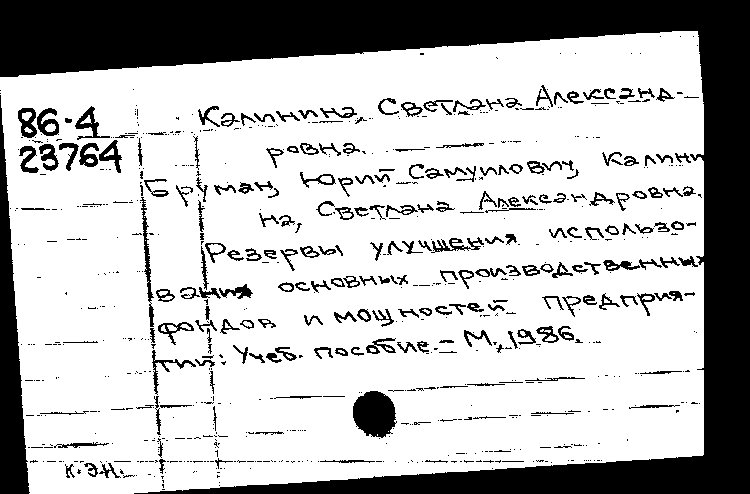 86-4
23764
Калинина, Светлана Александ-
ровна.
Бруман, Юрий Самуилович, Калини
на, Светлана Александровна.
Резервы улучшения использо-
вания основных производственных
фондов и мощностей предприя-
тий: Учеб. пособие. - М., 1986.
к.э.н.